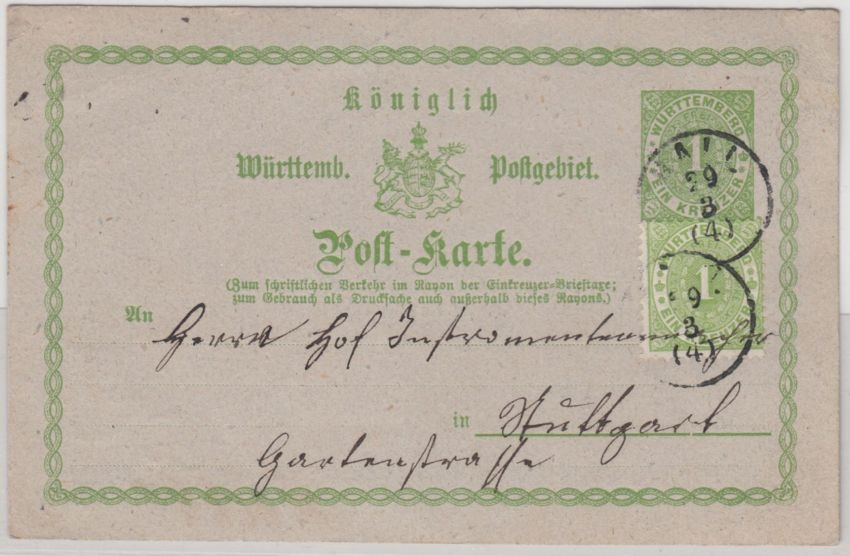 Königlich
Württemb. Postgebiet.
Post-Karte.
(Zum schriftlichen Verkehr im Rayon der Einkreuzer-Brieftaxe;
zum Gebrauch als Drucksache auch außerhalb dieses Rayons.)
WÜRTTEMBERG
1
EIN KREUZER
29
3
(4)
WÜRTTEMBERG
1
EIN KREUZER
9
3
(4)
An Herrn Hof
in Stuttgart
Gartenstrasse